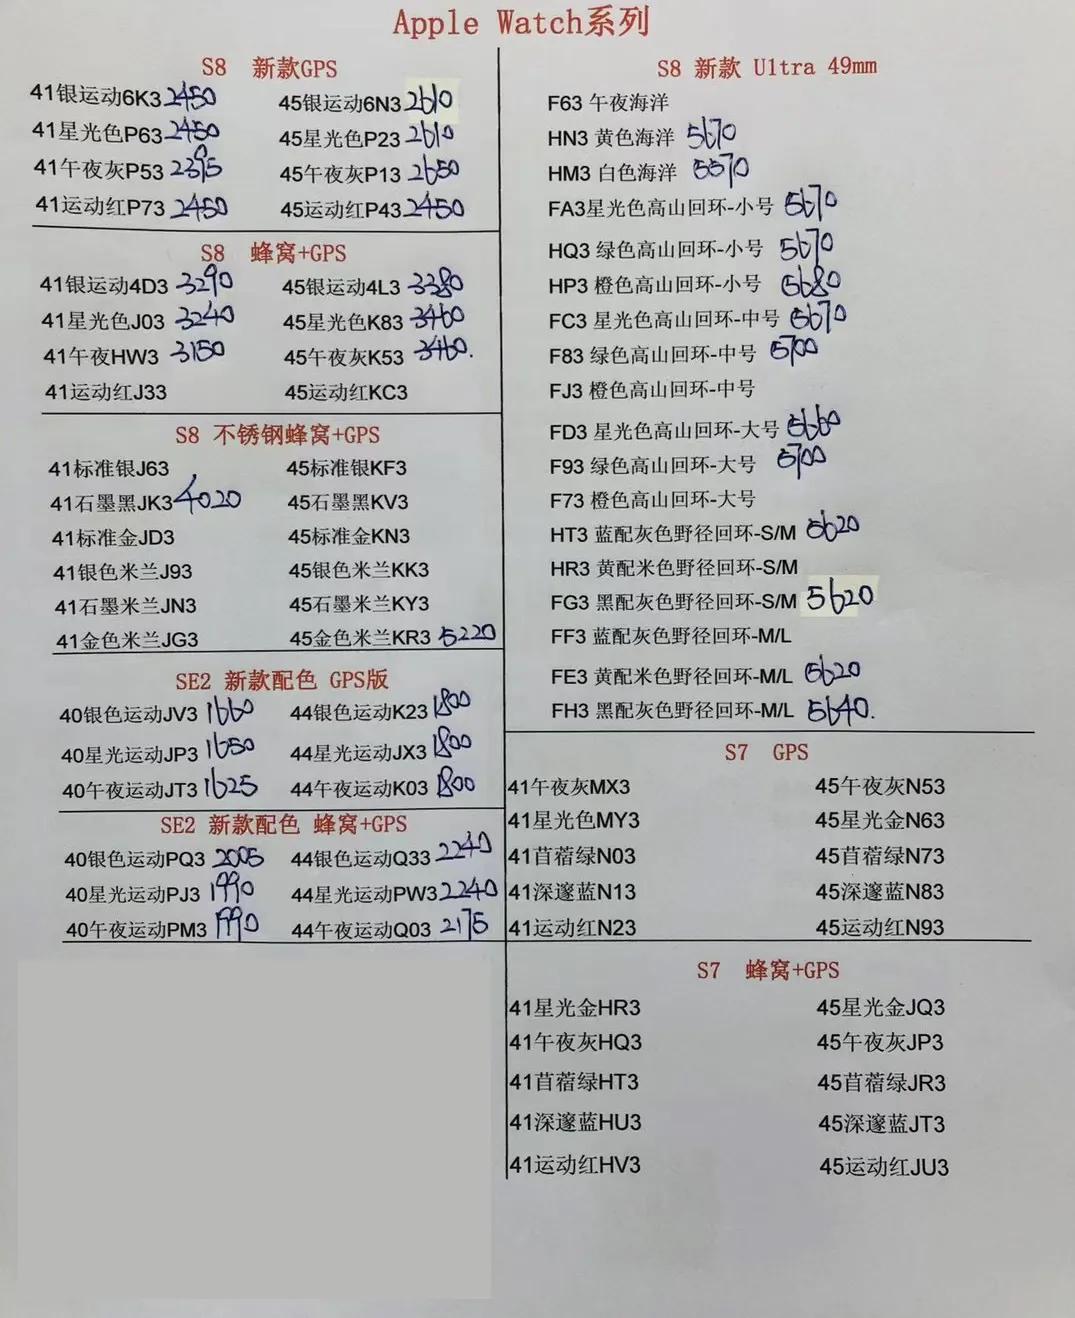 Apple Watch系列
S8 新款GPS
41银运动6K3 2450 45银运动6N3 2610
41星光色P63 2450 45星光色P23 2610
41午夜灰P53 2395 45午夜灰P13 2650
41运动红P73 2450 45运动红P43 2450
S8 蜂窝+GPS
41银运动4D3 3290 45银运动4L3 3380
41星光色J03 3240 45星光色K83 3460
41午夜HW3 3150 45午夜灰K53 3460.
41运动红J33 45运动红KC3
S8 不锈钢蜂窝+GPS
41标准银J63 45标准银KF3
41石墨黑JK3 4020 45石墨黑KV3
41标准金JD3 45标准金KN3
41银色米兰J93 45银色米兰KK3
41石墨米兰JN3 45石墨米兰KY3
41金色米兰JG3 45金色米兰KR3 5220
SE2 新款配色 GPS版
40银色运动JV3 1660 44银色运动K23 1800
40星光运动JP3 1650 44星光运动JX3 1800
40午夜运动JT3 1625 44午夜运动K03 1800
SE2 新款配色 蜂窝+GPS
40银色运动PQ3 2005 44银色运动Q33 2240
40星光运动PJ3 1990 44星光运动PW3 2240
40午夜运动PM3 1990 44午夜运动Q03 2175
S8 新款 Ultra 49mm
F63 午夜海洋
HN3 黄色海洋 5670
HM3 白色海洋 5570
FA3星光色高山回环-小号 5670
HQ3 绿色高山回环-小号 5670
HP3 橙色高山回环-小号 5680
FC3 星光色高山回环-中号 5670
F83 绿色高山回环-中号 5700
FJ3 橙色高山回环-中号
FD3 星光色高山回环-大号 5660
F93 绿色高山回环-大号 5700
F73 橙色高山回环-大号
HT3 蓝配灰色野径回环-S/M 5620
HR3 黄配米色野径回环-S/M
FG3 黑配灰色野径回环-S/M 5620
FF3 蓝配灰色野径回环-M/L
FE3 黄配米色野径回环-M/L 5620
FH3 黑配灰色野径回环-M/L 5640.
S7 GPS
41午夜灰MX3 45午夜灰N53
41星光色MY3 45星光金N63
41苜蓿绿N03 45苜蓿绿N73
41深邃蓝N13 45深邃蓝N83
41运动红N23 45运动红N93
S7 蜂窝+GPS
41星光金HR3 45星光金JQ3
41午夜灰HQ3 45午夜灰JP3
41苜蓿绿HT3 45苜蓿绿JR3
41深邃蓝HU3 45深邃蓝JT3
41运动红HV3 45运动红JU3